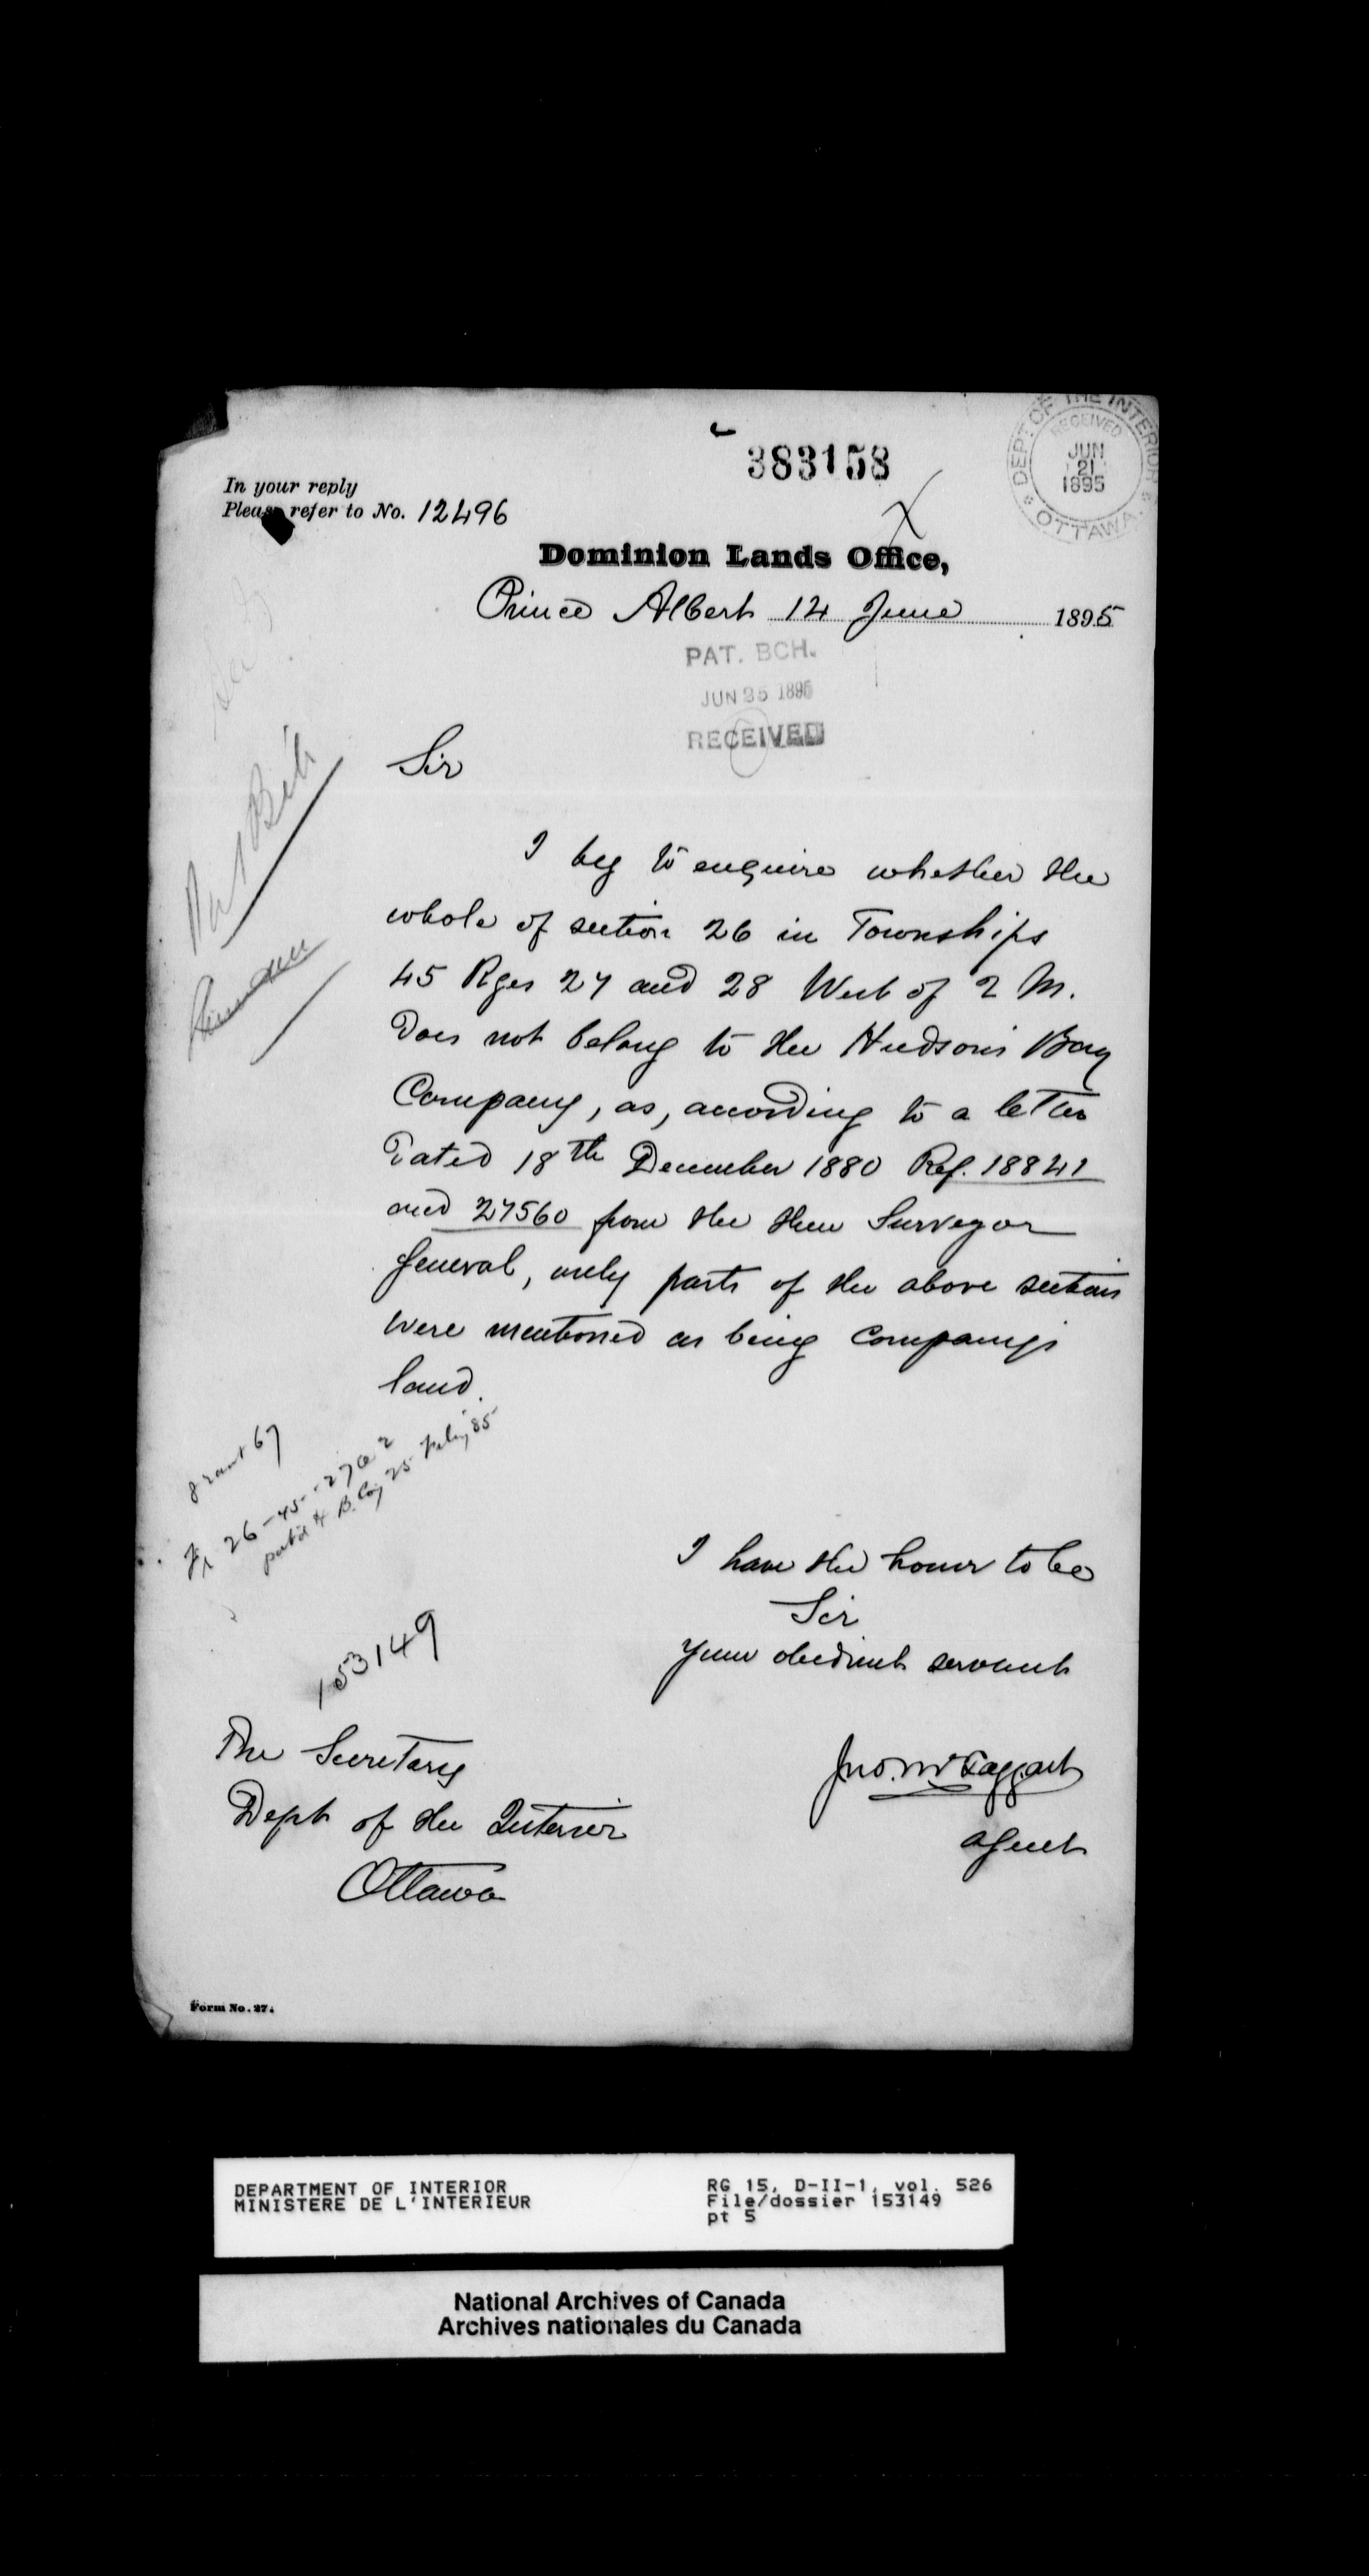 383158
DEPT OF THE INTERIOR
RECEIVED
JUN
21
1895
OTTAWA.
In your reply
Please refer to No. 12496
Dominion Lands Office,
Prince Albert 14 June 1895
PAT. BCH.
JUN 25 1895
RECEIVED
Sir
I beg to enquire whether the
whole of section 26 in Townships
45 Rges 27 and 28 West of 2 M.
Does not belong to the Hudson's Bay
Company, as, according to a letter
Dated 18th December 1880 Ref. 18841
and 27560 from the then Surveyor
General, only parts of the above sections
were mentioned as being Company's
land.
grant 67
Fr 26-45-27 W 2
pat'd H B. Coy 25 July 85
I have the honor to be
Sir
Your obedient servant
153149
The Secretary
Jno. McTaggart
Dept of the Interior
Agent
Ottawa
Form No. 27.
DEPARTMENT OF INTERIOR
MINISTERE DE L'INTERIEUR
RG 15, D-II-1, vol. 526
File/dossier 153149
pt 5
National Archives of Canada
Archives nationales du Canada